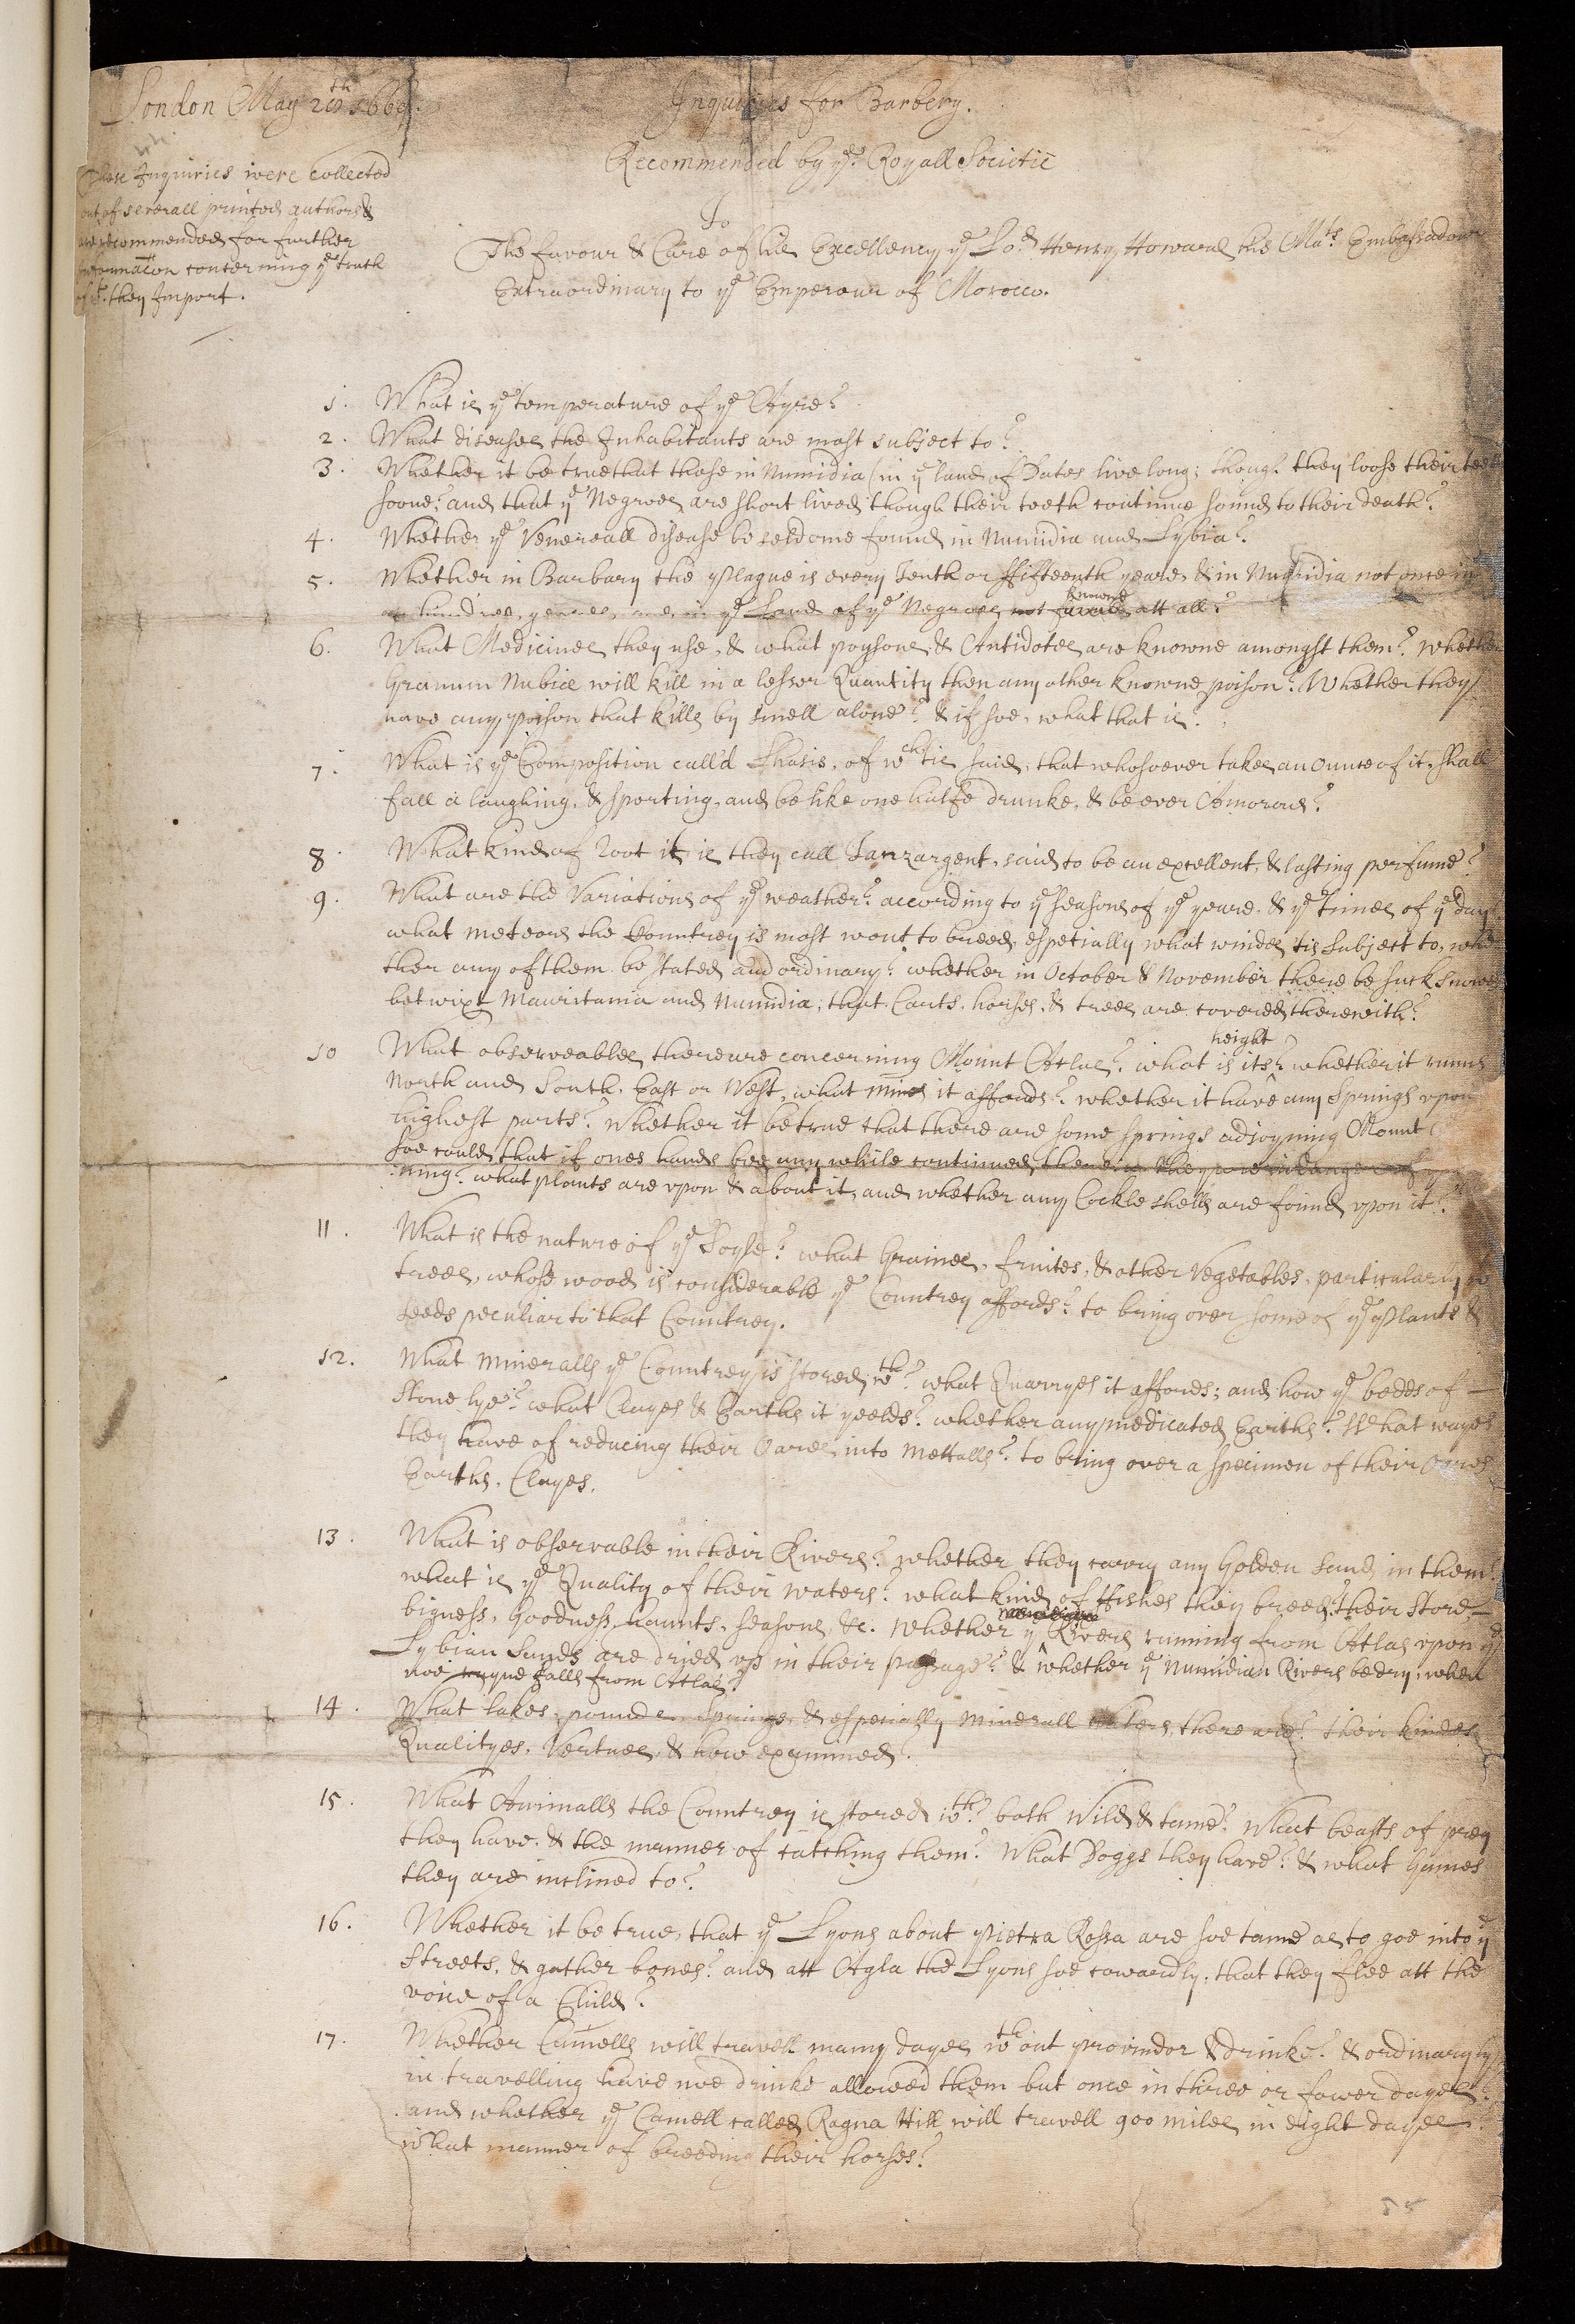 London May 20th 1669.
Inquiries for Barbery.
Recommended by ye Royall Societie
To
The favour & Care of his Excellency ye Lod Henry Howard the Mats Embassadour
Extraordinary to ye Emperour of Morocco.
These Inquiries were collected
out of severall printed authors &
are recommended for further
Informacon concerning ye truth
of wt they Import.
1. What is ye temperature of ye Ayre?
2. What diseases the Inhabitants are most subject to?
3. Whether it be true that those in Numidia (in ye land of Dates live long; though they loose their teeth
soone; and that ye Negroes are short lived though their teeth continue sound to their death?
4. Whether ye Venereall disease be seldome found in Numidia and Lybia?
5. Whether in Barbary the Plague is every Tenth or ffifteenth yeare, & in Numidia not once in
an hundred yeares, and in ye Land of ye Negroes not knowne att all?
6. What Medicines they use, & what poysons, & Antidotes are knowne amongst them? Whether
Granum Nubiæ will kill in a lesser Quantity then any other knowne poison? Whether they
have any poison that kills by smell alone? & if soe, what that is?
7. What is ye Composition call'd Lhasis, of wch tis said, that whosoever takes an ounce of it, shall
fall a laughing, & sporting, and be like one halfe drunke, & be ever Amorous?
8. What kind of Root it is they call Tanzargent, said to be an excellent, & lasting perfume?
9. What are the Variations of ye weather? according to ye seasons of ye yeare, & ye times of ye day
what meteors the Countrey is most wont to breed, especially what windes tis subject to, whe
ther any of them be stated and ordinary? whether in October & November there be such snowes
betwixt Mauritania and Numidia, that Carts, horses, & trees are covered therewith?
10 What observeables there are concerning Mount Atlas? what is its height? whether it runns
North and South, East or West, what mines it affords? whether it have any Springs upon
highest parts? Whether it be true that there are some springs adjoyning Mount
soe could, that if ones hands bee any while continued therein they are in danger of
ning? what plants are upon & about it, and whether any Cockle shells are found upon it?
11. What is the nature of ye Soyle? what Graines, fruites, & other Vegetables, particularly
trees, whose wood is considerable ye Countrey affords? to bring over some of ye Plants &
seeds peculiar to that Countrey.
12. What Mineralls ye Countrey is stored wth? what Quarryes it affords; and how ye bedds of
Stone lye? what Clayes & Earths it yeelds? whether any medicated Earths? What wayes
they have of reducing their Oares into Mettalls? to bring over a specimen of their Oares
Earths, Clayes.
13. What is observable in their Rivers? whether they carry any Golden Sand in them?
what is ye Quality of their waters? what kind of ffishes they breed? their store,
bigness, goodness, haunts, seasons, &c. Whether ye Rivers running from Atlas upon ye
Lybian Sands are dried up in their passage? & whether ye Numidian Rivers be dry, when
noe rayne falls from Atlas?
14. What lakes, pounds, Springs, & especially Minerall waters, there are? their kindes
Qualityes, Vertues, & how examined?
15. What Animalls the Countrey is stored wth? both Wild & tame? What beasts of prey
they have, & the manner of catching them? What Doggs they have? & what Games
they are inclined to?
16. Whether it be true, that ye Lyons about Pietra Rossa are soe tame as to goe into ye
Streets, & gather bones? and att Agla the Lyons soe cowardly, that they flee att the
voice of a Child?
17. Whether Camells will travell many dayes wthout provindor & drinke? & ordinaryly
in travelling have noe drinke allowed them but once in three or fower dayes?
and whether ye Camell called Ragna Hill will travell 900 miles in eight dayes
what manner of breeding their horses?